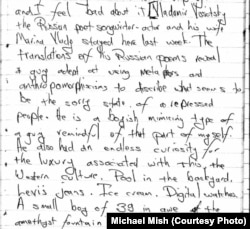 and I feel bad about it. Vladimir Vysotsky
the Russian poet-songwriter-actor and his wife
Marina Vlady stayed here last week. The
translations of his Russian poems reveal
a guy adept at using metaphors and
anthropomorphising to describe what seems to
be the sorry state of a repressed
people. He is a boyish winning type of
a guy reminding of that part of myself.
He also had an endless curiosity for
the luxury associated with this, the
Western culture. Pool in the backyard.
Levi's jeans. Ice cream. Digital watches.
A small boy of 39 in awe of the
amethyst fountain
Michael Mish (Courtesy Photo)